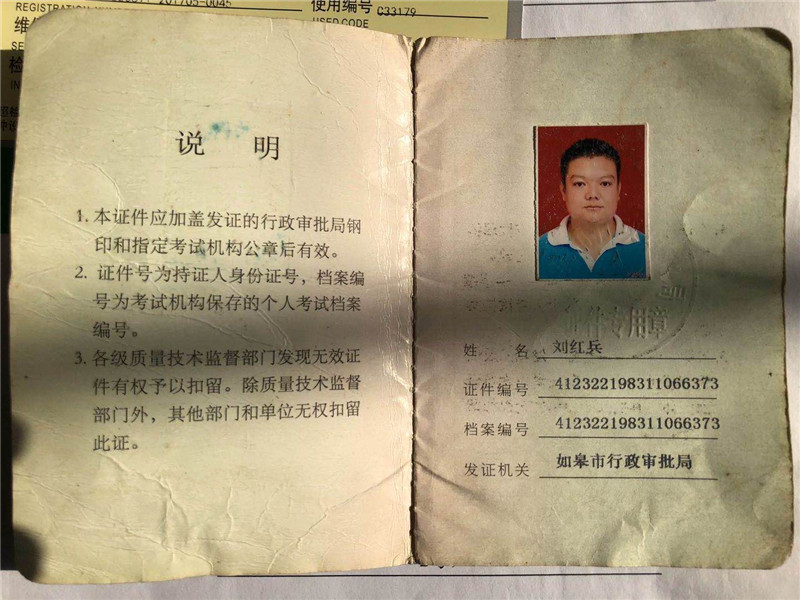 REGISTRATION
201705-0045
使用编号
C33179
USED CODE
说 明
1. 本证件应加盖发证的行政审批局钢
印和指定考试机构公章后有效。
2. 证件号为持证人身份证号，档案编
号为考试机构保存的个人考试档案
编号。
3. 各级质量技术监督部门发现无效证
件有权予以扣留。除质量技术监督
部门外，其他部门和单位无权扣留
此证。
证件专用章
姓 名 刘红兵
证件编号 412322198311066373
档案编号 412322198311066373
发证机关 如皋市行政审批局